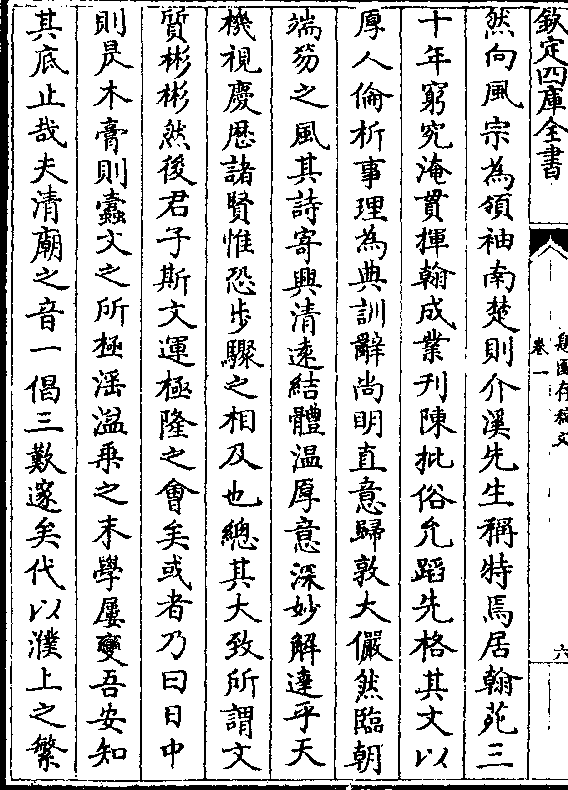 欽定四庫全書
卷一
六
然向風宗為領袖南楚則介溪先生稱特焉居翰苑三
十年窮究淹貫揮翰成業刋陳批俗允蹈先格其文以
厚人倫析事理為典訓辭尚明直意歸敦大儼然臨朝
端笏之風其詩寄興清逺結體温厚意深妙解達乎天
機視慶厯諸賢惟恐歩驟之相及也總其大致所謂文
質彬彬然後君子斯文運極隆之會矣或者乃曰日中
則昃木膏則蠧文之所極滛溢乘之末學屢變吾安知
其底止哉夫清廟之音一倡三歎邃矣代以濮上之繁